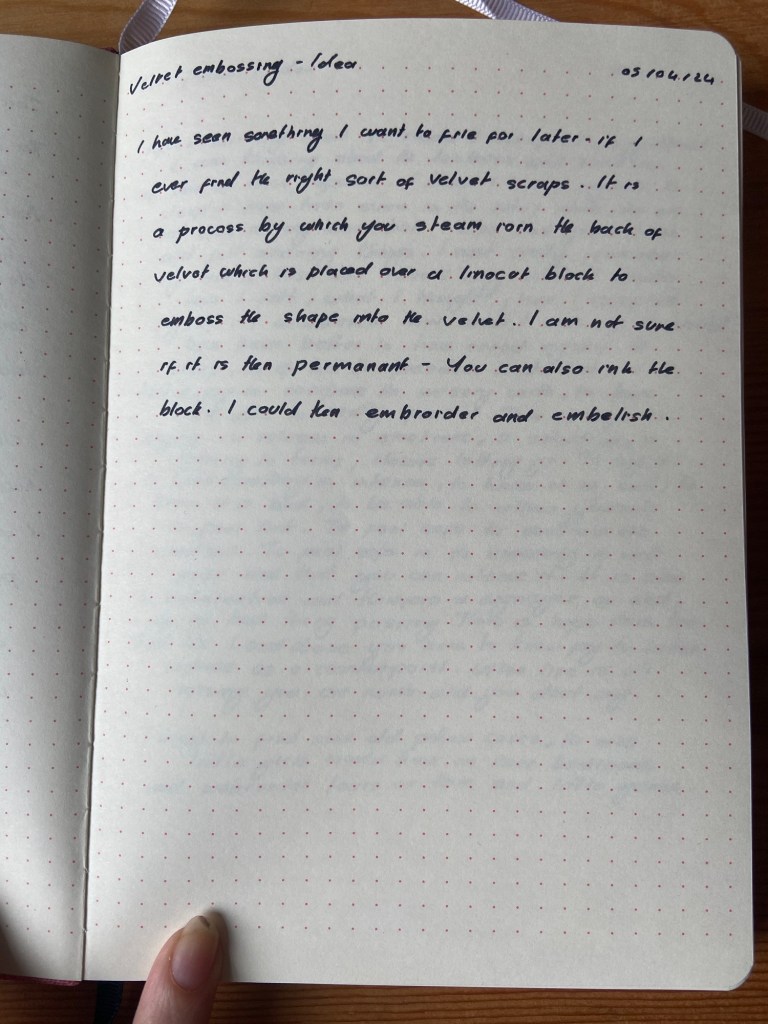 Velvet embossing - Idea 05/04/24
I have seen something I want to file for later - if I
ever find the right sort of velvet scraps. It is
a process by which you steam iron the back of
velvet which is placed over a linocut block to
emboss the shape into the velvet. I am not sure
if it is then permanant - You can also ink the
block. I could then embroider and embelish.